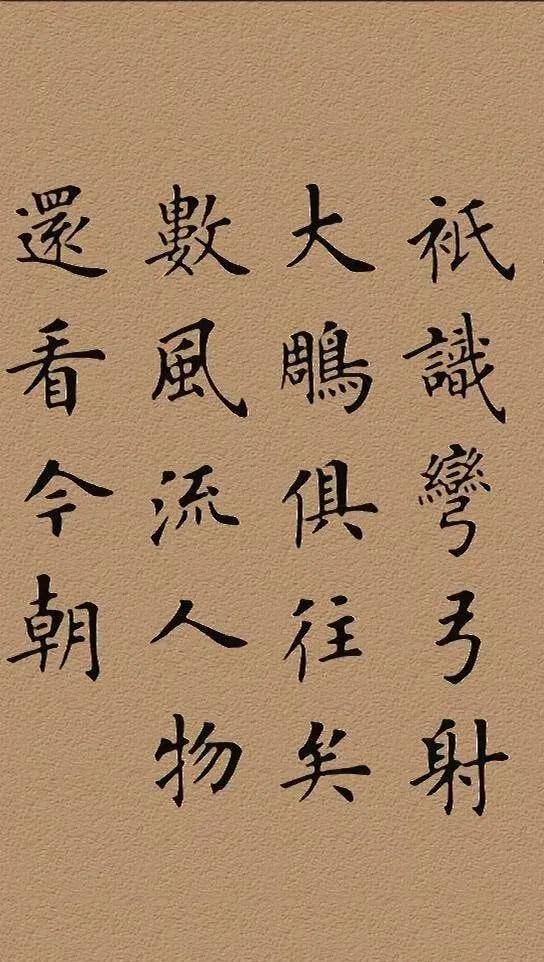 衹識彎弓射
大鵰俱往矣
數風流人物
還看今朝